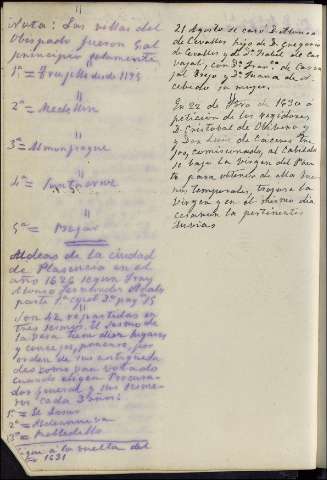 Nota: Las villas del
Obispado fueron 5 al
principio solamente
1ª = Trujillo desde 1195
2ª = Medellin
3ª = Almonfrague
4ª =
5ª = Bejar
Aldeas de la ciudad
de Plasencia en el
año 1626 segun Fray
Alonso Fernandez Anales
parte 1ª cap 3º pag 15
Son 42 repartidas en
tres sesmos. El sesmo de
la vera tiene diez lugares
y concejos, ponense, por
orden de sus antigueda
des como van votando
cuando eligen Procura-
dor general y sus Sesme-
ros cada 3 años:
1º = La Losar
2º = Aldeanueva
3º = Robledillo
Sigue a la vuelta del
1631
21 Agosto se caso D. Alonso
de Cevallos hijo de D. Gregorio
de Cevallos y de Dª Isabel de Car
vajal, con Dª Franca de Carva
jal Trejo y Dª Juana de A-
cebedo su mujer.
En 22 de 1630 a
peticion de los regidores
D. Cristobal de Obibono y
y Don Luis de Caceres En
, comisionado, al Cabildo
se bajo la Virgen del Puer
to para obtener de ella bue
nos temporales, trajose la
virgen y en el mismo dia
la pertinentes
lluvias